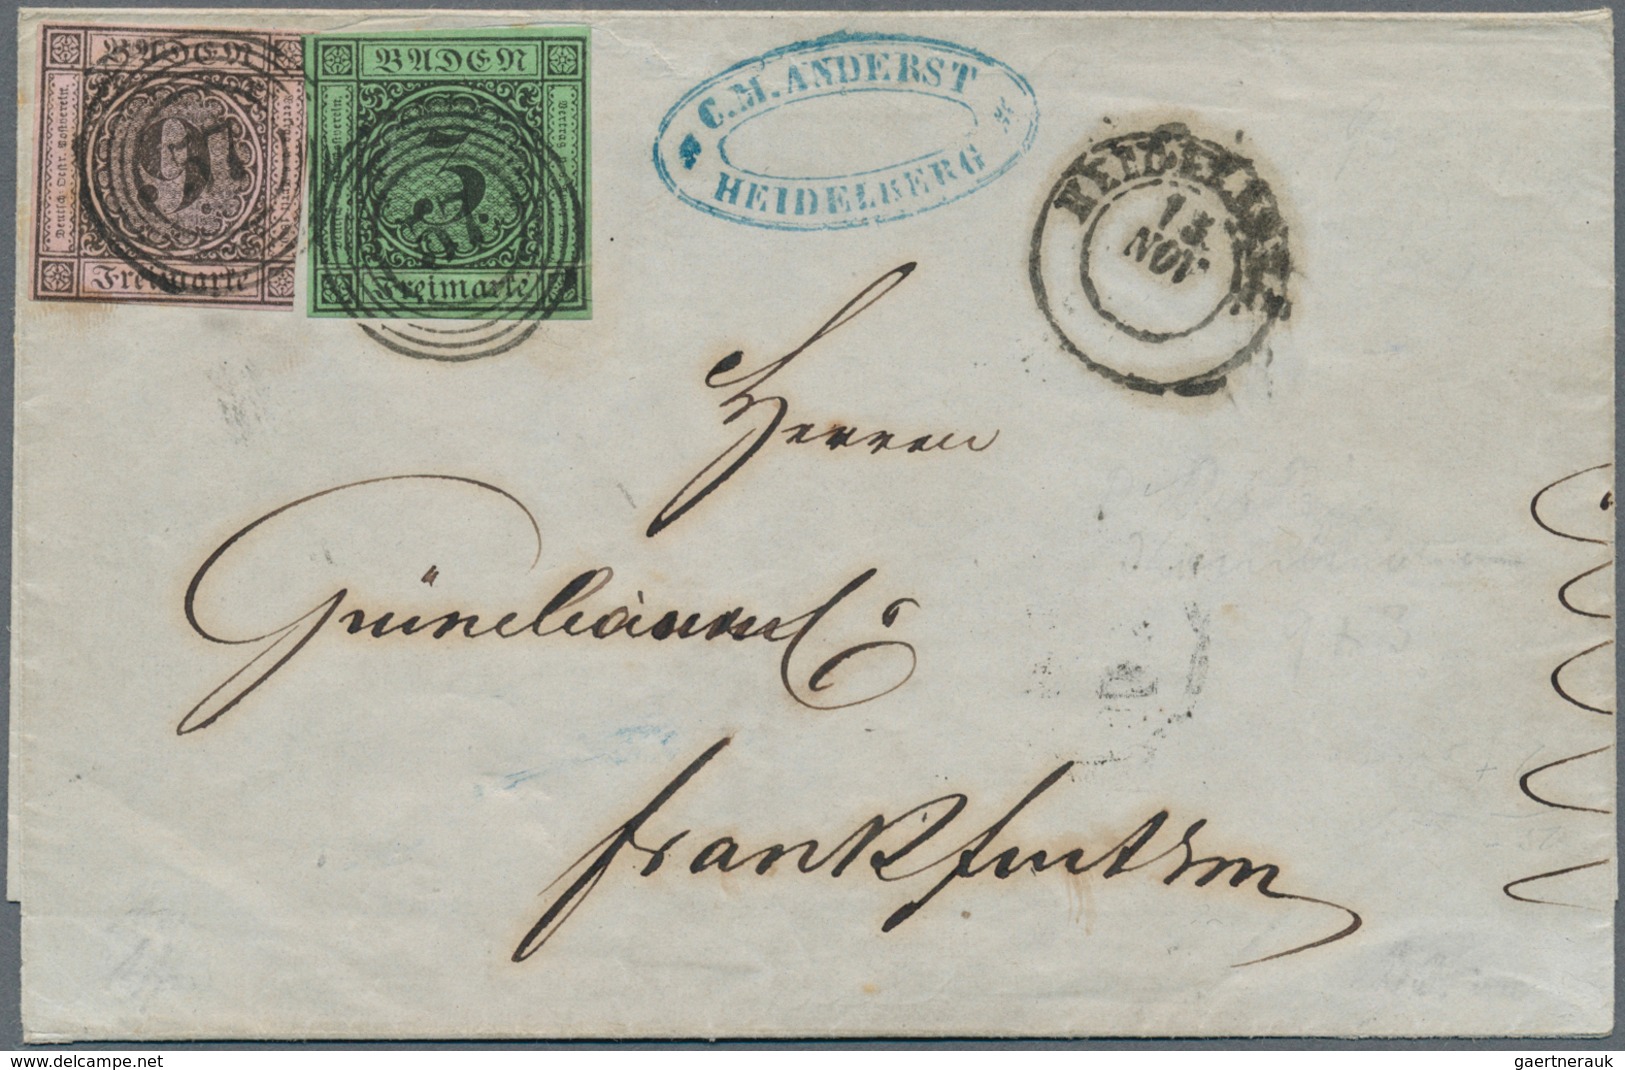 BADEN
9
Freimarke
Deutsch Oestr. Postverein.
BADEN
3
Freimarke
C. M. ANDERST
HEIDELBERG
HEIDELBERG
13
NOV
Herren
Frankfurt a/m
9 + 3
www.delcampe.net
gaertnerauk